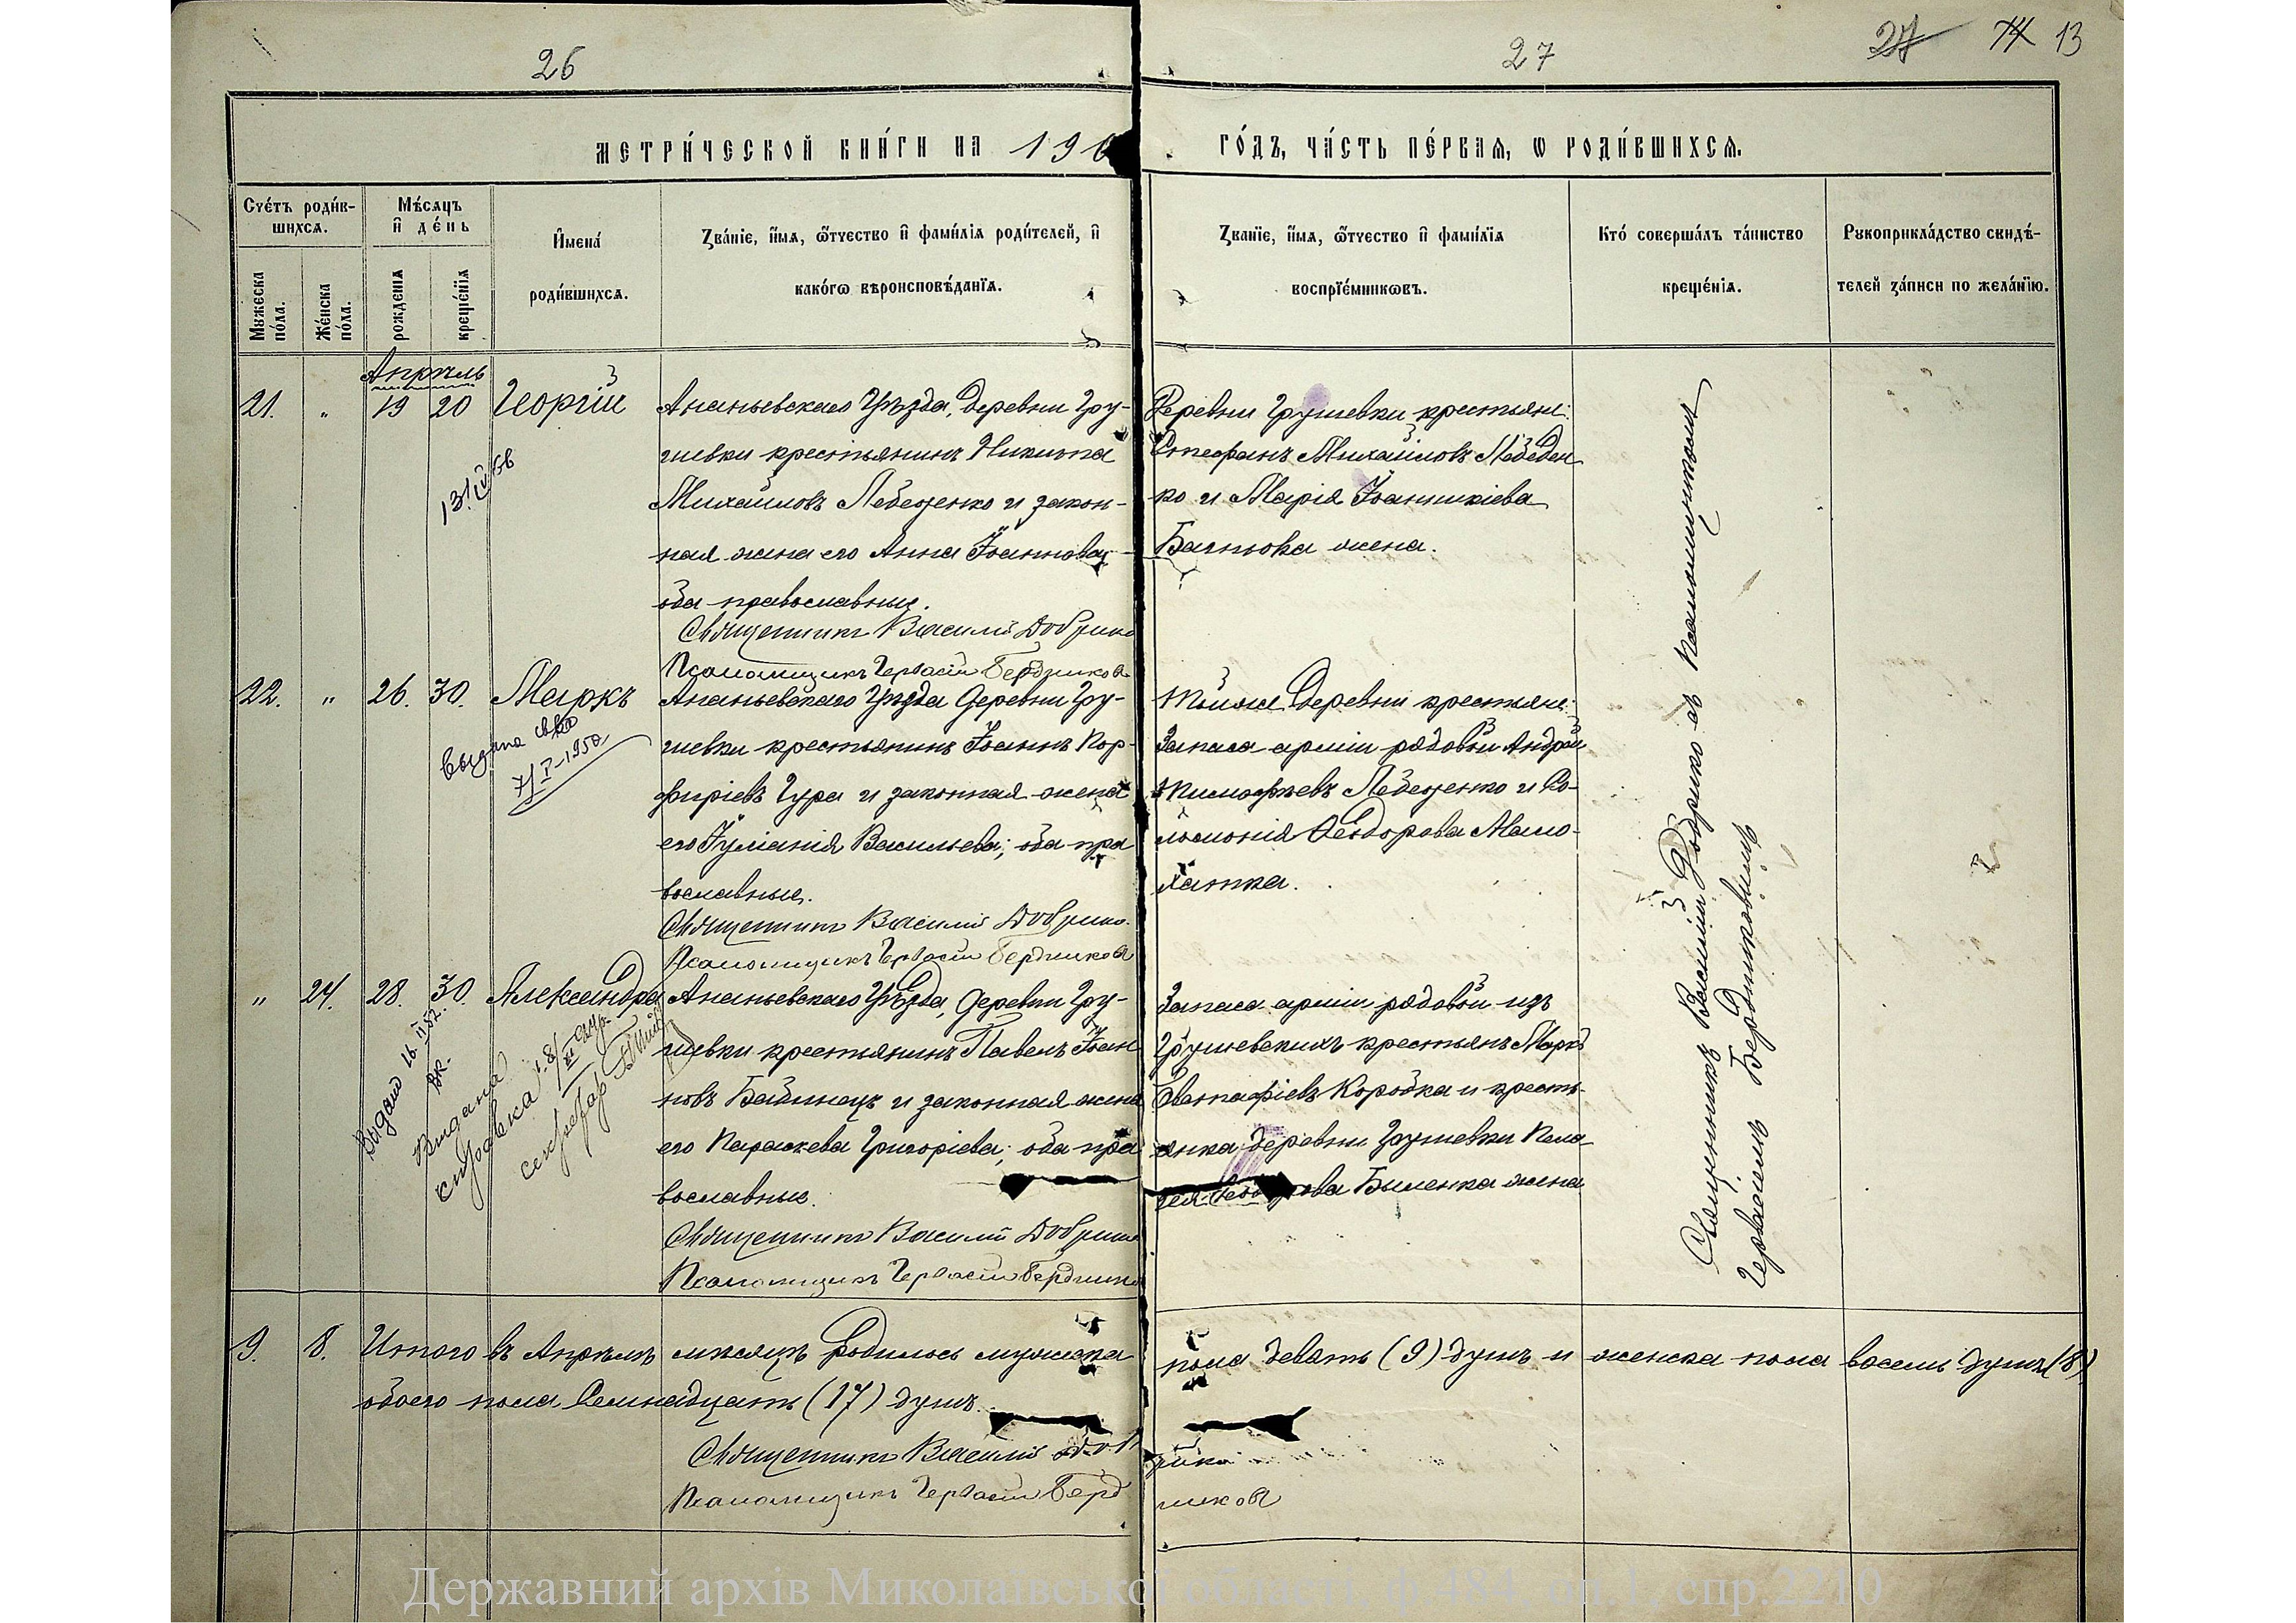 26
27
27 74 13
МЕТРИ́ЧЕСКОЙ КНИ́ГИ НА 190
ГО́ДЪ, ЧА́СТЬ ПЕ́РВАЯ, Ѡ РОДИ́ВШИХСЯ.
Сче́тъ роди́в-
шихся.
Мꙋжеска
по́ла.
Же́нска
по́ла.
Мѣ́сяцъ
и҆ де́нь
рожденїя
креще́нїя
И҆мена́
роди́вшихся.
Зва́нїе, и҆́мя, ѻ҆́тчество и҆ фами́лїя роди́телей, и҆
како́гѡ вѣроисповѣ́данїя.
Званїе, и҆́мя, ѻ҆́тчество и҆ фами́лїя
воспрїе́мникѡвъ.
Кто̀ соверша́лъ та́инство
креще́нїя.
Рꙋкоприкла́дство свидѣ́-
телей за́писи по жела́нїю.
Апрѣль
21. " 19 20 Георгій
Ананьевскаго Уѣзда, деревни Гру-
шевки крестьянинъ Никита
Михайловъ Лебеденко и закон-
ная жена его Анна Іоаннова,
оба православные.
Священникъ Василій Добрико
Псаломщикъ Гервасій Бердникова
Деревни Грушевки крестьяне:
Стефанъ Михайловъ Лебеден-
ко и Марія Іоанникіева
жена.
22. " 26. 30. Маркъ
Выдана
7/I-1950
Ананьевскаго Уѣзда деревни Гру-
шевки крестьянинъ Іоаннъ Пор-
фиріевъ Гура и законная жена
его Іуліанія Васильева; оба пра
вославные.
Священникъ Василій Добрико.
Псаломщикъ Гервасій Бердникова
Тойже деревни крестьяне:
Запаса арміи рядовой Андрей
Тимофѣевъ Лебеденко и Со-
ломонія Ѳеодорова Мало-
хатка.
" 24. 28. 30. Александра
Выдано 16.
Видана
секретар
Ананьевскаго Уѣзда, деревни Гру-
шевки крестьянинъ Павелъ Іоан
новъ Бабинецъ и законная жена
его Параскева Григоріева; оба пра
вославные.
Священникъ Василій Добрико
Псаломщикъ Гервасій Бердников
Запаса арміи рядовой изъ
Грушевскихъ крестьянъ Маркъ
Евстафіевъ Коробка и кресть-
янка деревни Грушевки Пела-
гея Ѳеодорова Быленка жена
Священникъ Василій Добрико съ псаломщикомъ
Гервасіемъ Бердниковымъ
9. 8. Итого въ Апрѣлѣ мѣсяцѣ родилось мужеска пола девять (9) душъ и женска пола восемь душъ (8)
обоего пола Семнадцать (17) душъ.
Священникъ Василій Добрико
Псаломщикъ Гервасій Бердникова
Державний архів Миколаївської області, ф.484, оп.1, спр.2210